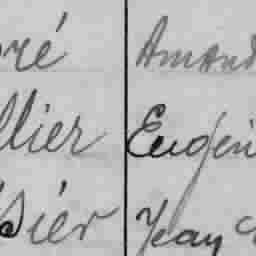 ré Amand
llier Eugén
sier Jean